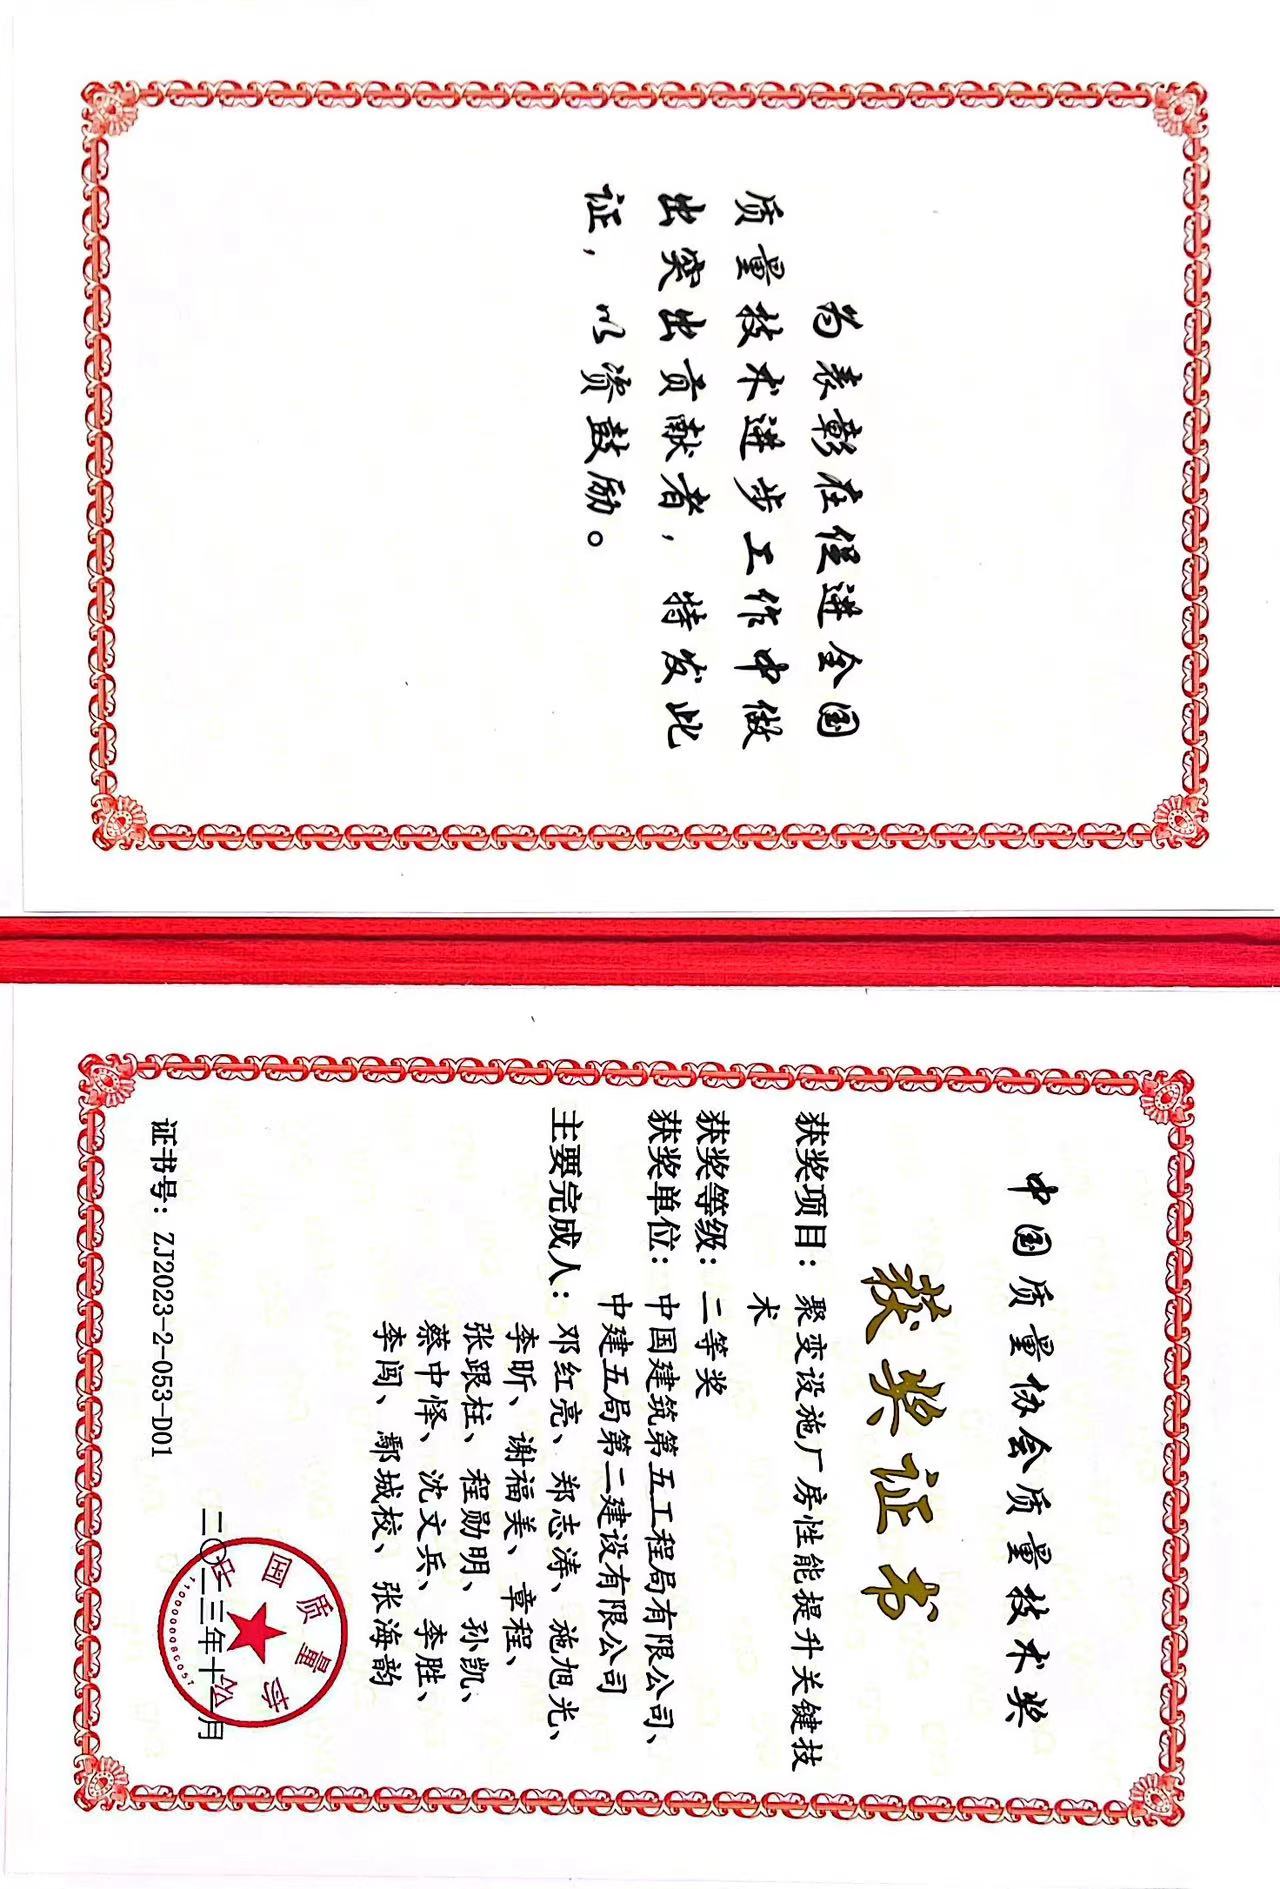 为表彰在促进全国
质量技术进步工作中做
出突出贡献者，特发此
证，以资鼓励。
中国质量协会质量技术奖
获奖证书
获奖项目：聚变设施厂房性能提升关键技
术
获奖等级：二等奖
获奖单位：中国建筑第五工程局有限公司、
中建五局第二建设有限公司
主要完成人：邓红亮、郑志涛、施旭光、
李昕、谢福美、章程、
张跟柱、程勋明、孙凯、
蔡中怿、沈文兵、李胜、
李闯、鄢城校、张海韵
中国质量协会
二〇二三年十一月
证书号：ZJ2023-2-053-D01